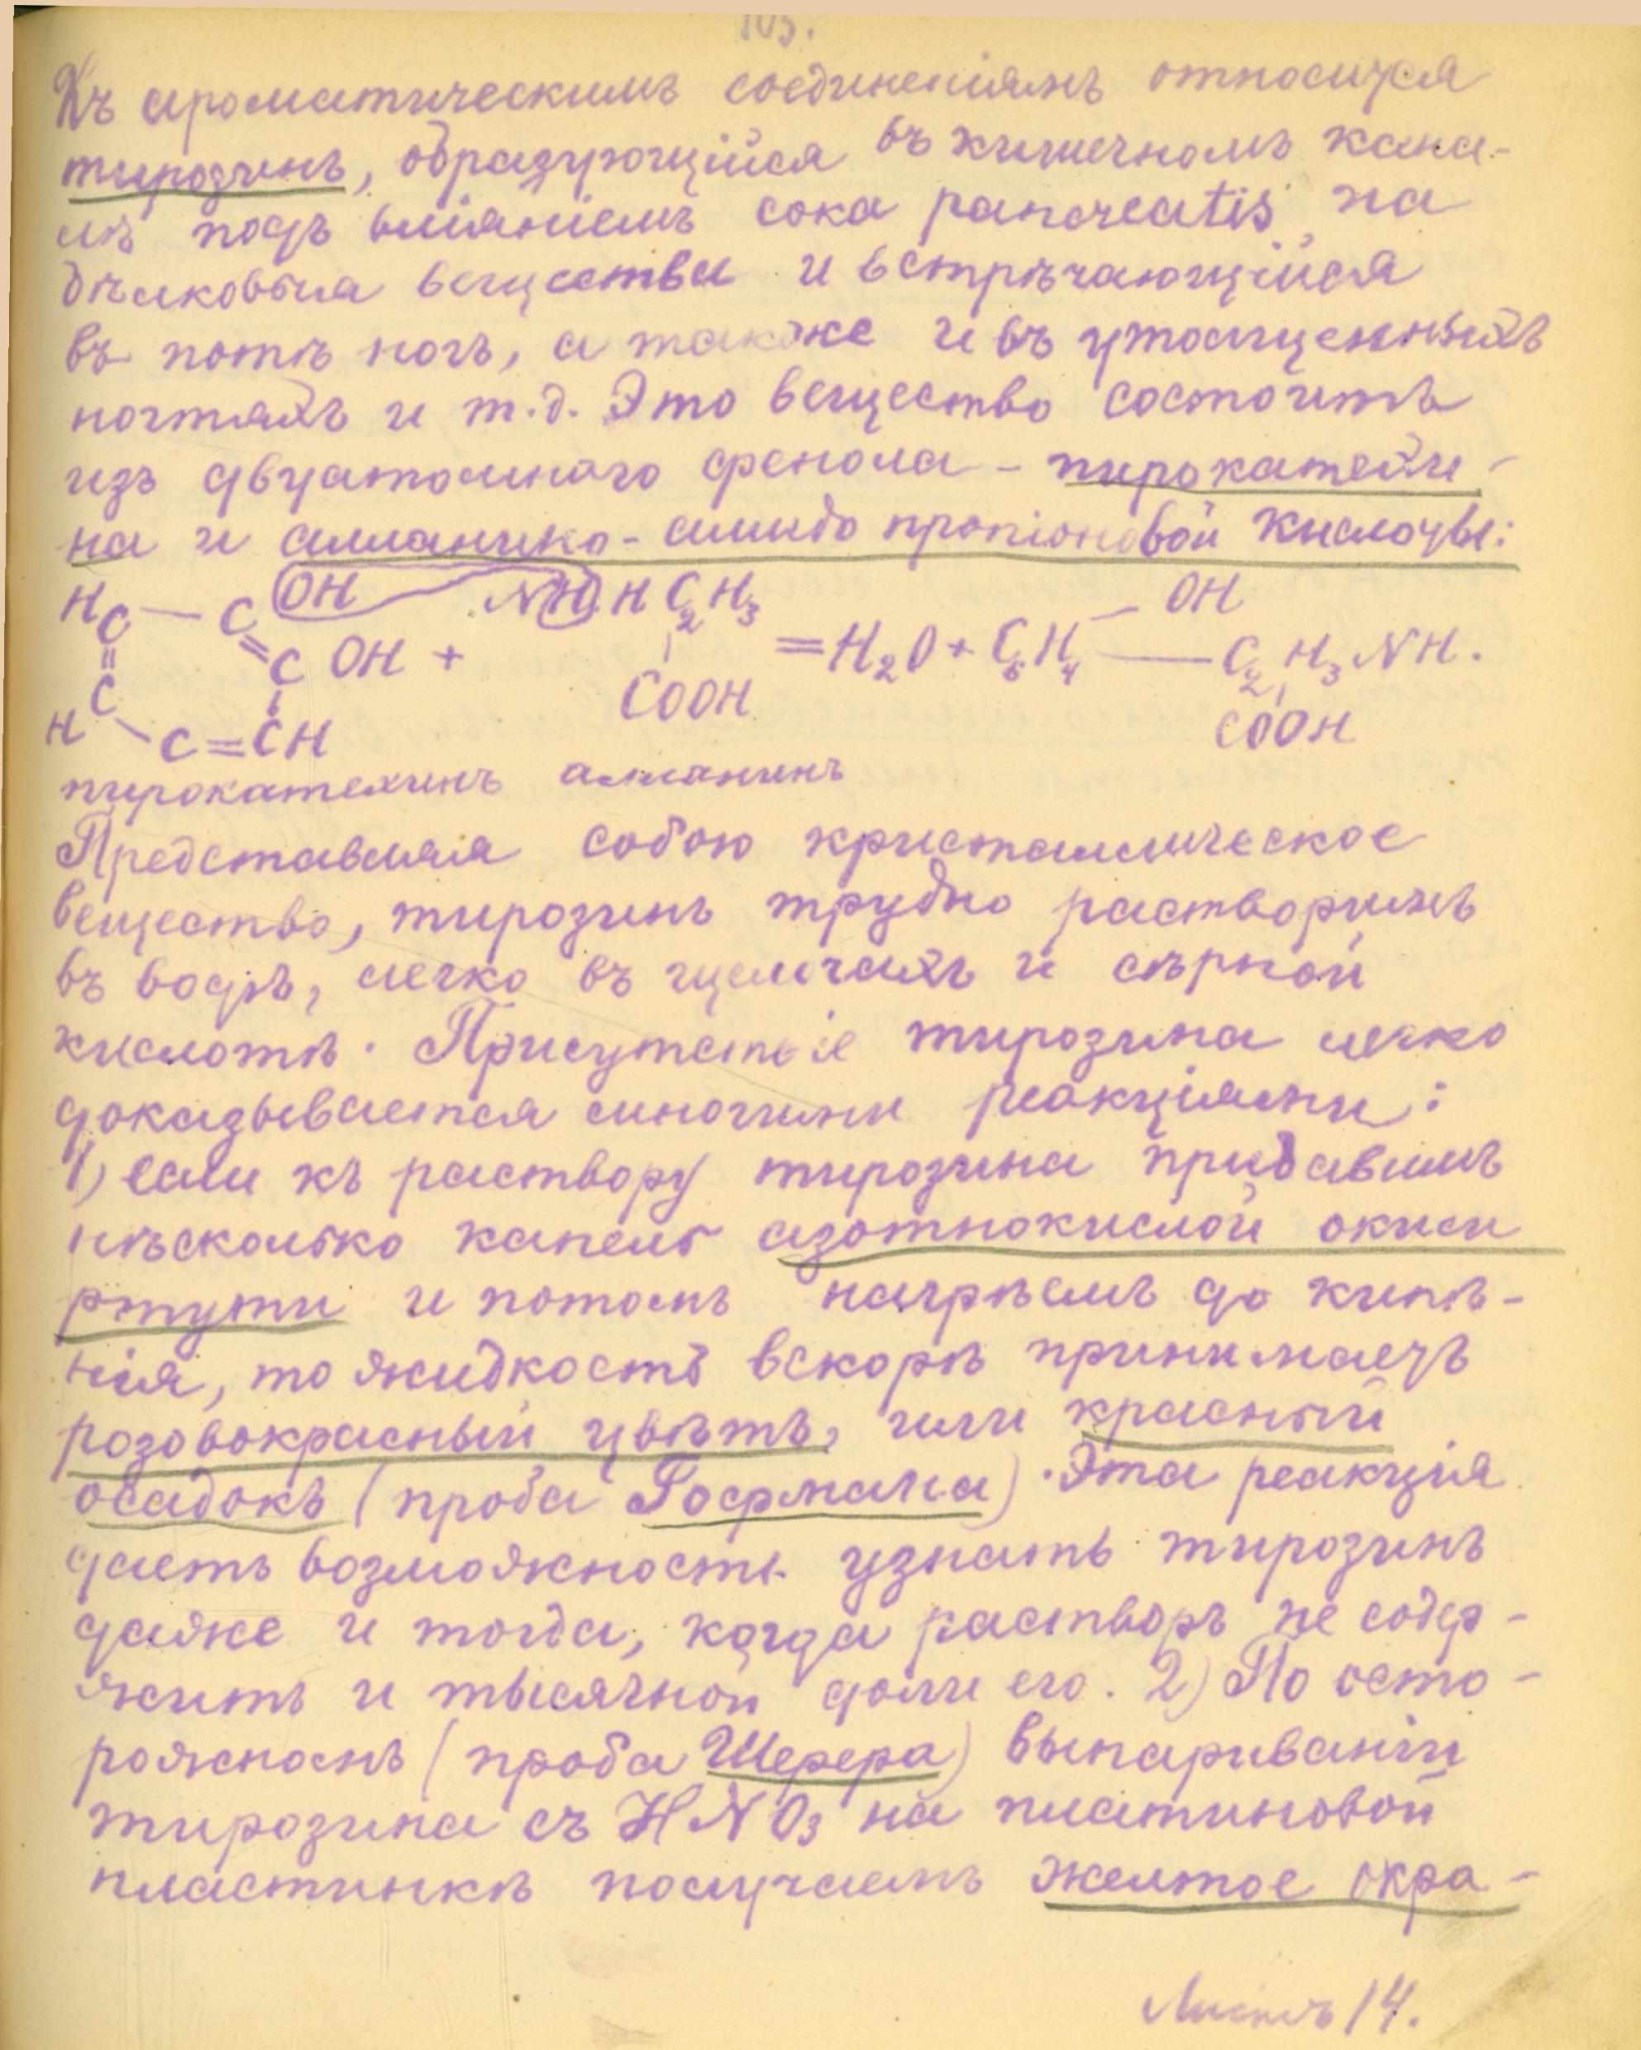 105.
Къ ароматическимъ соединеніямъ относится
тирозинъ, образующійся въ кишечномъ кана-
лѣ подъ вліяніемъ сока pancreatis на
бѣлковыя вещества и встрѣчающійся
въ потѣ ногъ, а также и въ утолщенныхъ
ногтяхъ и т.д. Это вещество состоитъ
изъ двуатомнаго фенола - пирокатехи-
на и алланино-амидо пропіоновой кислоты:
H C — C OH NH H C2H3 OH
C C OH + COOH = H2O + C6H4 — C2H3NH.
H C = CH COOH
пирокатехинъ алланинъ
Представляя собою кристаллическое
вещество, тирозинъ трудно растворимъ
въ водѣ, легко въ щелочахъ и сѣрной
кислотѣ. Присутствіе тирозина легко
доказывается многими реакціями:
1) если къ раствору тирозина прибавимъ
нѣсколько капель азотнокислой окиси
ртути и потомъ нагрѣемъ до кипѣ-
нія, то жидкость вскорѣ принимаетъ
розовокрасный цвѣтъ, или красный
осадокъ (проба Гофмана). Эта реакція
даетъ возможность узнать тирозинъ
даже и тогда, когда растворъ не содер-
житъ и тысячной доли его. 2) По осто-
рожномъ (проба Шерера) выпариваніи
тирозина съ HNO3 на платиновой
пластинкѣ получаемъ желтое окра-
Листъ 14.